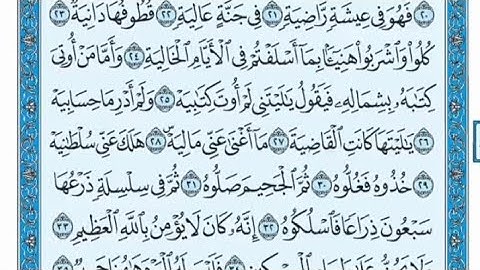 ٢٠ فَهُوَ فِى عِيشَةٍ رَّاضِيَةٍ ٢١ فِى جَنَّةٍ عَالِيَةٍ ٢٢ قُطُوفُهَا دَانِيَةٌ ٢٣
كُلُوا۟ وَٱشْرَبُوا۟ هَنِيٓـًٔۢا بِمَآ أَسْلَفْتُمْ فِى ٱلْأَيَّامِ ٱلْخَالِيَةِ ٢٤ وَأَمَّا مَنْ أُوتِىَ
كِتَـٰبَهُۥ بِشِمَالِهِۦ فَيَقُولُ يَـٰلَيْتَنِى لَمْ أُوتَ كِتَـٰبِيَهْ ٢٥ وَلَمْ أَدْرِ مَا حِسَابِيَهْ
٢٦ يَـٰلَيْتَهَا كَانَتِ ٱلْقَاضِيَةَ ٢٧ مَآ أَغْنَىٰ عَنِّى مَالِيَهْ ٢٨ هَلَكَ عَنِّى سُلْطَـٰنِيَهْ
٢٩ خُذُوهُ فَغُلُّوهُ ٣٠ ثُمَّ ٱلْجَحِيمَ صَلُّوهُ ٣١ ثُمَّ فِى سِلْسِلَةٍ ذَرْعُهَا
سَبْعُونَ ذِرَاعًا فَٱسْلُكُوهُ ٣٢ إِنَّهُۥ كَانَ لَا يُؤْمِنُ بِٱللَّهِ ٱلْعَظِيمِ ٣٣